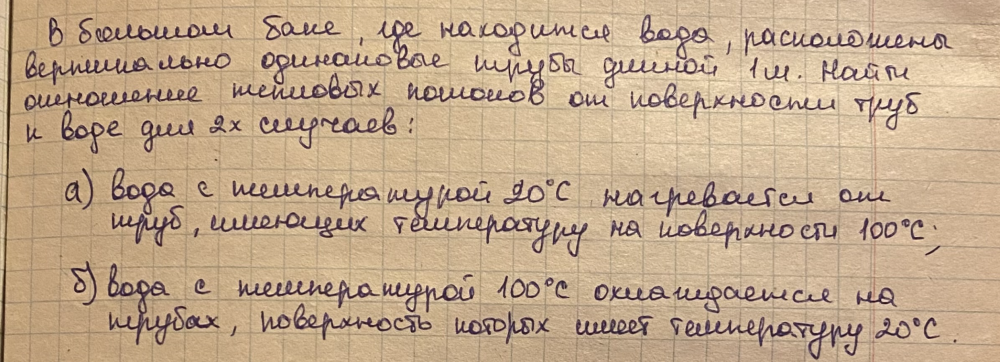 В большом баке, где находится вода, расположены
вертикально одинаковые трубы длиной 1м. Найти
отношение тепловых потоков от поверхности труб
к воде для 2х случаев:
а) вода с температурой 20°С нагревается от
труб, имеющих температуру на поверхности 100°С;
б) вода с температурой 100°С охлаждается на
трубах, поверхность которых имеет температуру 20°С.